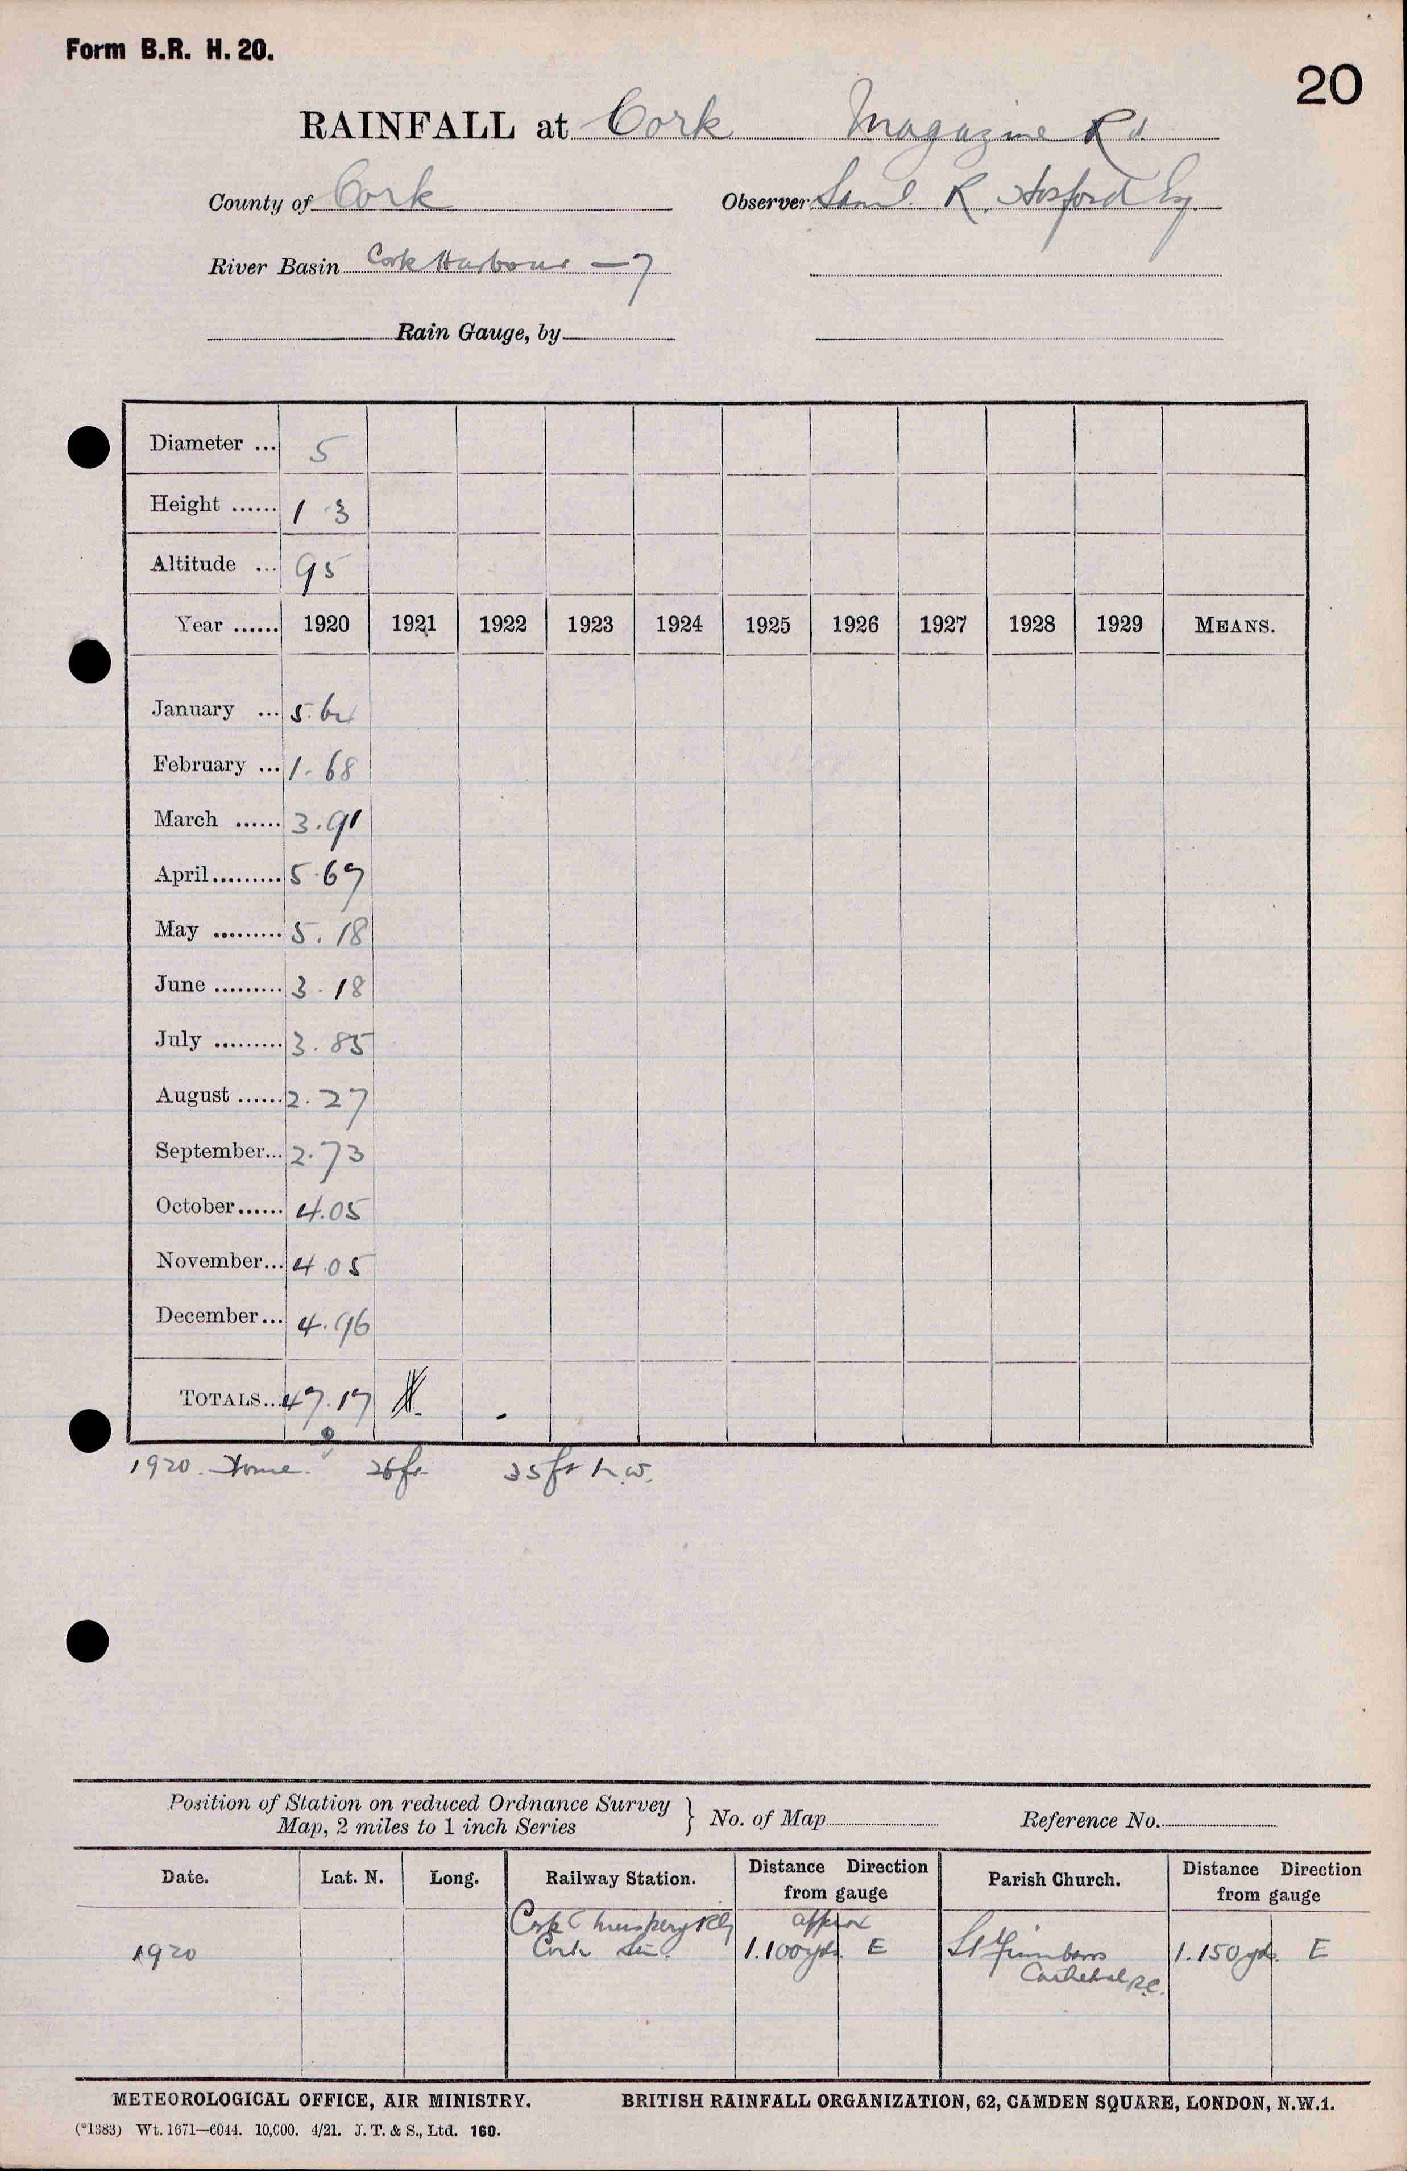 Form B.R. H. 20.
20
RAINFALL at Cork Magazine Rd
County of Cork Observer Saml. R. Hosford Esq.
River Basin Cork Harbour — 7
Rain Gauge, by
Diameter ... 5
Height ...... 1 . 3
Altitude ... 95
Year ...... 1920 1921 1922 1923 1924 1925 1926 1927 1928 1929 MEANS.
January ... 5.64
February ... 1.68
March ...... 3.91
April ......... 5.67
May ......... 5.18
June ......... 3.18
July ......... 3.85
August ...... 2.27
September... 2.73
October...... 4.05
November... 4.05
December... 4.96
TOTALS... 47.17
1920. 26ft. 35ft N.W.
Position of Station on reduced Ordnance Survey
Map, 2 miles to 1 inch Series } No. of Map Reference No.
Date. Lat. N. Long. Railway Station. Distance Direction from gauge Parish Church. Distance Direction from gauge
Cork & Rly approx
1920 Cork Stn. 1.100 yds. E St Finnbarrs 1.150 yds. E
Cathedral R.C.
METEOROLOGICAL OFFICE, AIR MINISTRY. BRITISH RAINFALL ORGANIZATION, 62, CAMDEN SQUARE, LONDON, N.W.1.
(*1383) Wt. 1671—6044. 10,000. 4/21. J. T. & S., Ltd. 160.